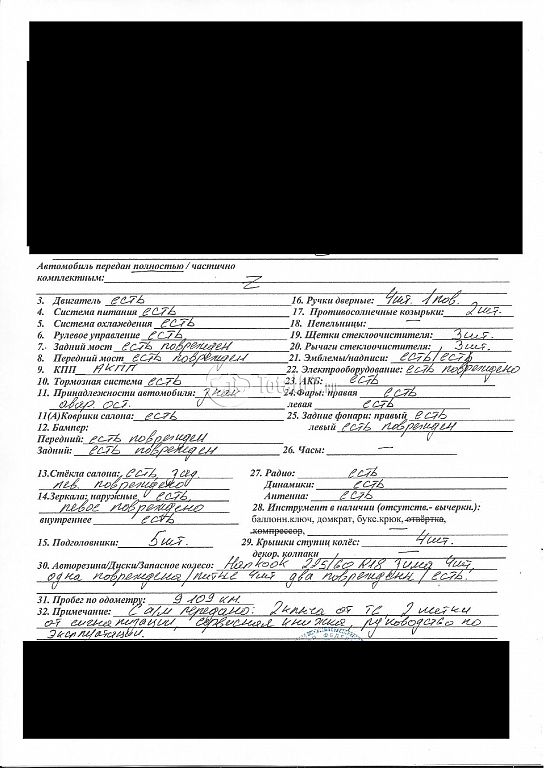 Автомобиль передан полностью / частично
комплектным: Z
3. Двигатель есть 16. Ручки дверные: 4шт. 1 пов.
4. Система питания есть 17. Противосолнечные козырьки: 2шт.
5. Система охлаждения есть 18. Пепельницы:
6. Рулевое управление есть 19. Щетки стеклоочистителя: 3шт.
7. Задний мост есть поврежден 20. Рычаги стеклоочистителя: 3шт.
8. Передний мост есть поврежден 21. Эмблемы/надписи: есть/есть
9. КПП АКПП 22. Электрооборудование: есть повреждено
10. Тормозная система есть 23. АКБ: есть
11. Принадлежности автомобиля: знак 24. Фары: правая есть
авар. ост. левая есть
11(А)Коврики салона: есть 25. Задние фонари: правый есть
12. Бампер: левый есть поврежден
Передний: есть поврежден
Задний: есть поврежден 26. Часы: —
13.Стёкла салона: есть зад. 27. Радио: есть
лев. повреждено Динамики: есть
14.Зеркала: наружные есть, Антенна: есть
левое повреждено 28. Инструмент в наличии (отсутств.- вычеркн.):
внутреннее есть баллонн.ключ, домкрат, букс.крюк, отвёртка,
компрессор, —
15. Подголовники: 5шт. 29. Крышки ступиц колёс: 4шт.
декор. колпаки —
30. Авторезина/Диски/Запасное колесо: Hankook 225/60 R18 Зима 4шт,
одна повреждена/литые 4шт два повреждены/есть.
31. Пробег по одометру: 9109 км
32. Примечание: С а/м передано: 2 ключа от ТС, 2 метки
от сигнализации, сервисная книжка, руководство по
эксплуатации.